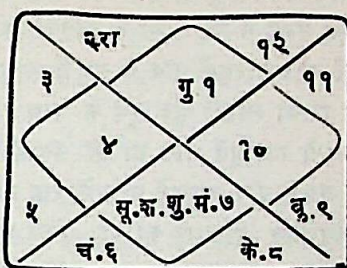 २रा १२
३ गु १ ११
४ १०
५ सू.श.शु.मं.७ बु.९
चं.६ के.८